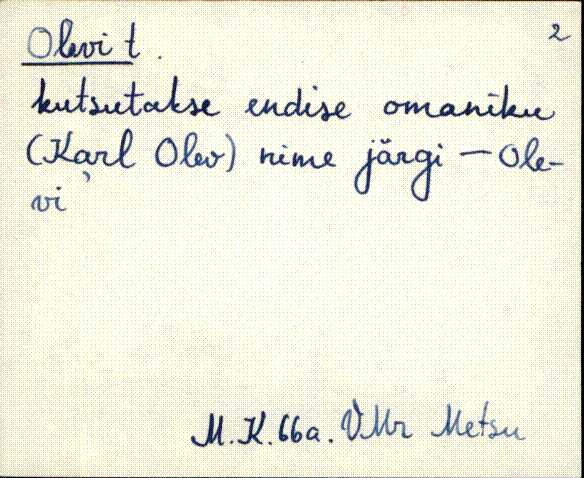 2
Olevi t.
kutsutakse endise omaniku
(Karl Olev) nime järgi — Ole-
vi
M. K. 66a. VMr Metsu